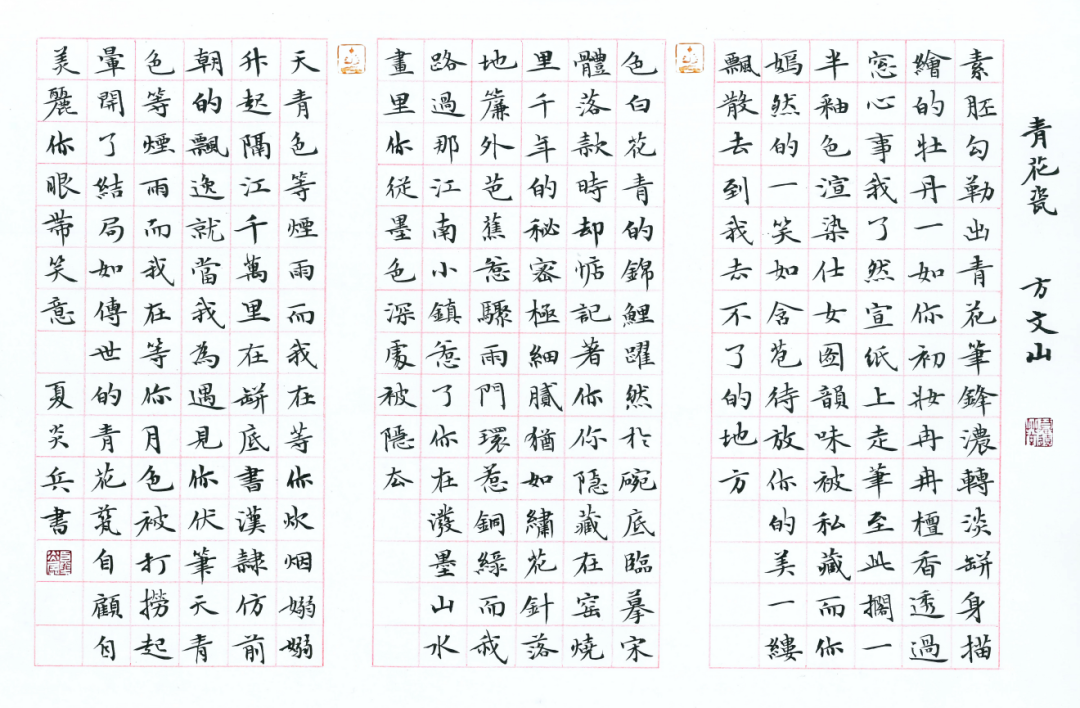 青花瓷 方文山
素胚勾勒出青花筆鋒濃轉淡缾身描
繪的牡丹一如你初妝冉冉檀香透過
窓心事我了然宣纸上走筆至此擱一
半釉色渲染仕女图韻味被私藏而你
嫣然的一笑如含苞待放你的美一縷
飄散去到我去不了的地方
色白花青的錦鯉躍然於碗底臨摹宋
體落款時却惦記著你你隱藏在窑燒
里千年的秘密極細膩猶如繡花針落
地簾外芭蕉惹驟雨門環惹銅綠而我
路過那江南小鎮惹了你在潑墨山水
畫里你從墨色深處被隱去
天青色等煙雨而我在等你炊烟嫋嫋
升起隔江千萬里在缾底書漢隸仿前
朝的飄逸就當我為遇見你伏筆天青
色等煙雨而我在等你月色被打撈起
暈開了結局如傳世的青花瓷自顧自
美麗你眼帶笑意 夏炎兵書